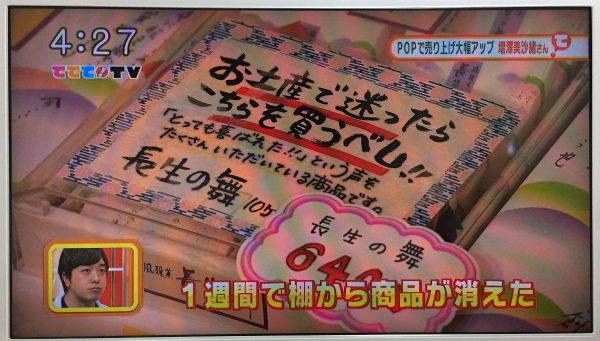 4:27
ててて!TV
POPで売り上げ大幅アップ 増澤美沙緒さん
て
お土産で迷ったら
こちらを買うべし!!
「とっても喜ばれた!!」という声を
たくさんいただいている商品です。
長生の舞 10ケ
長生の舞
64
1週間で棚から商品が消えた